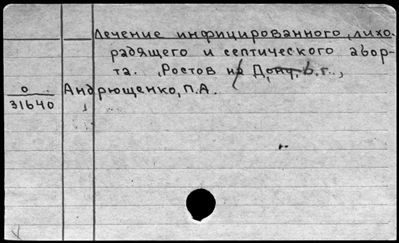 Лечение инфицированного, лихо-
радящего и септического абор-
та. Ростов н/Дону, б.г.,
О
31640
Андрющенко, П.А.